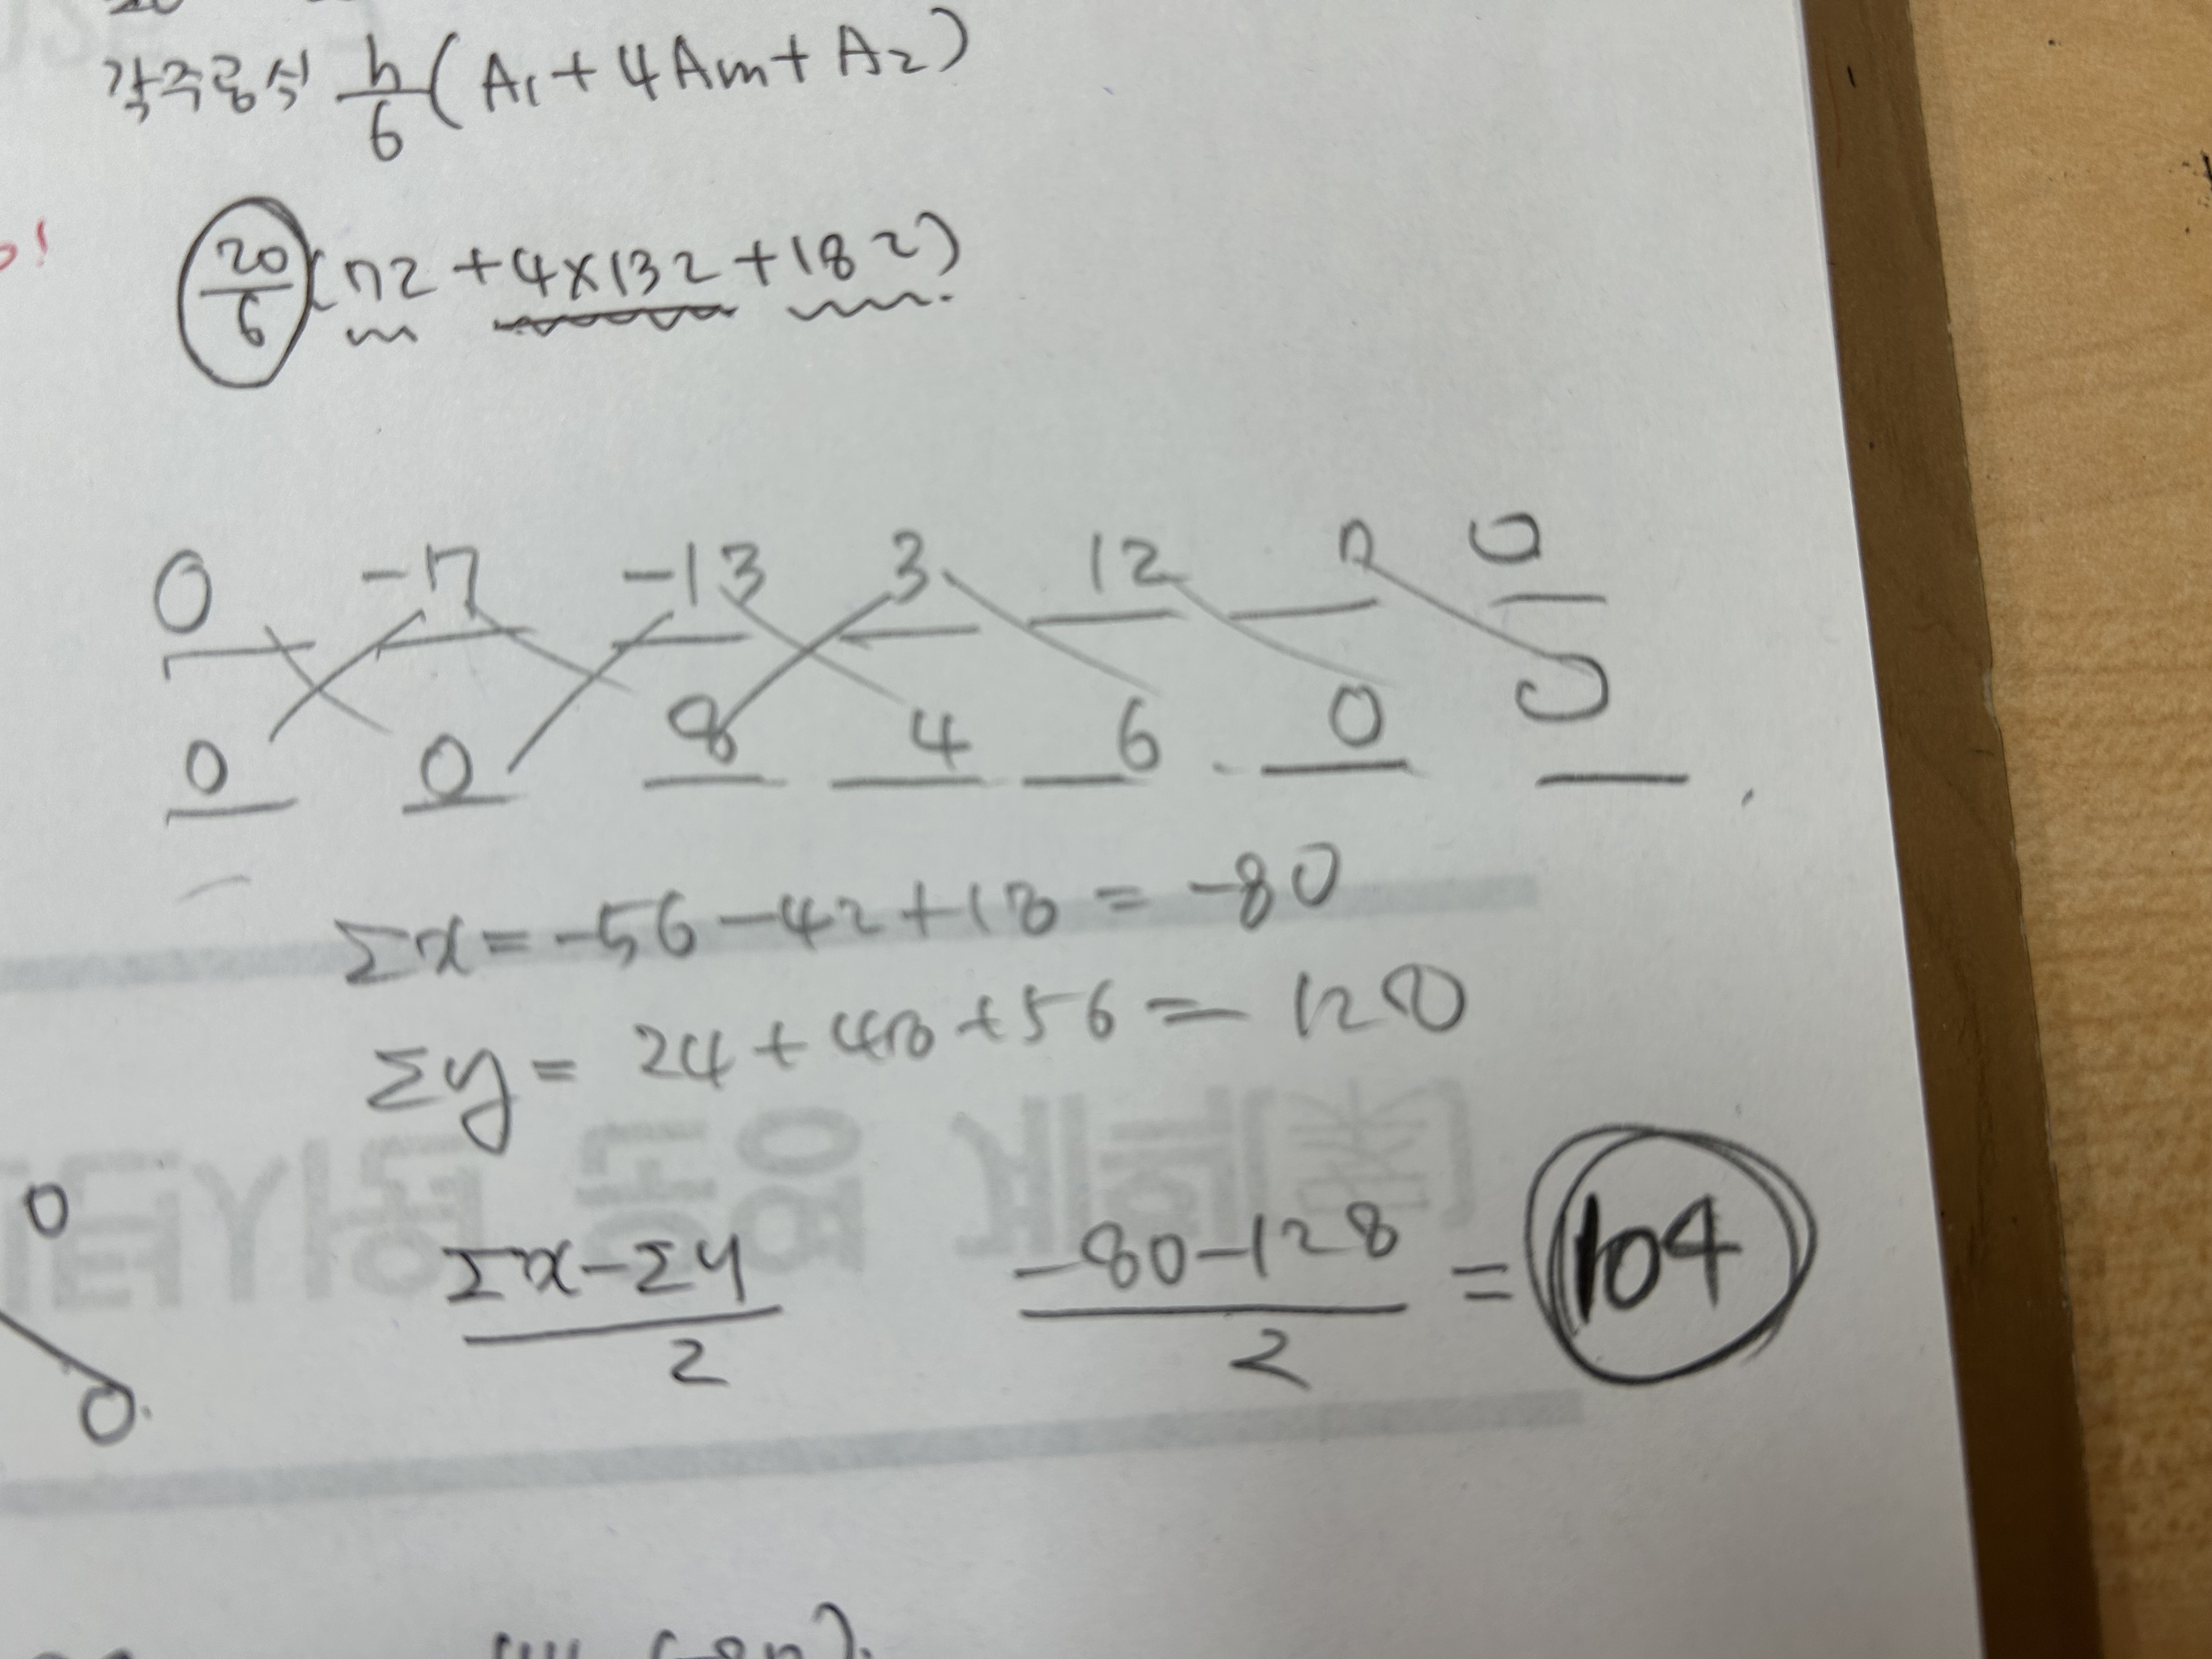 각주공식 h/6 (A₁ + 4Am + A₂)
20/6 (72 + 4×132 + 182)
0 -7 -13 3 12 7 0
0 0 8 4 6 0 0
Σx = -56 - 42 + 18 = -80
Σy = 24 + 48 + 56 = 128
0
Σx - Σy / 2 -80 - 128 / 2 = 104
0